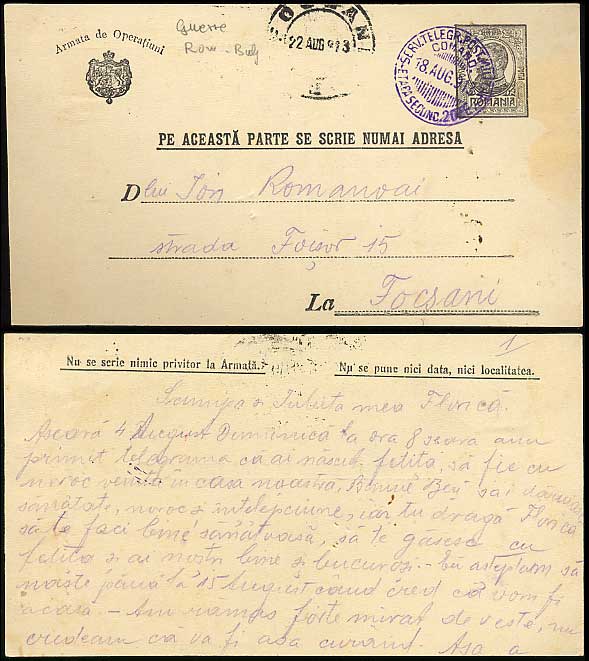 Armata de Operațiuni
Guerre
Rom-Bulg
22 AUG 913
SERV.TELEGR.POSTAL
18.AUG.91
ETAPA SECUND.
ROMANIA
PE ACEASTĂ PARTE SE SCRIE NUMAI ADRESA
Dlui Ion Romanvai
strada Foișor 15
La Focșani
1
Nu se scrie nimic privitor la Armată.
Nu se pune nici data, nici localitatea.
Scumpa si Iubita mea Florică.
Aseară 4 August Duminică la ora 8 seara am
primit telegrama că ai născut fetita, să fie cu
noroc venită in casa noastra, Bunul
sănătate, noroc si intelepciune, iar tu dragă Florica
să te faci bine sănătoasă, să te găsesc cu
fetita si ai nostri bine si bucurosi - Eu asteptam să
naste până la 15 August când cred că vom fi
acasă. - Am ramas forte mirat de veste, nu
credeam că va fi asa curand. Asa a